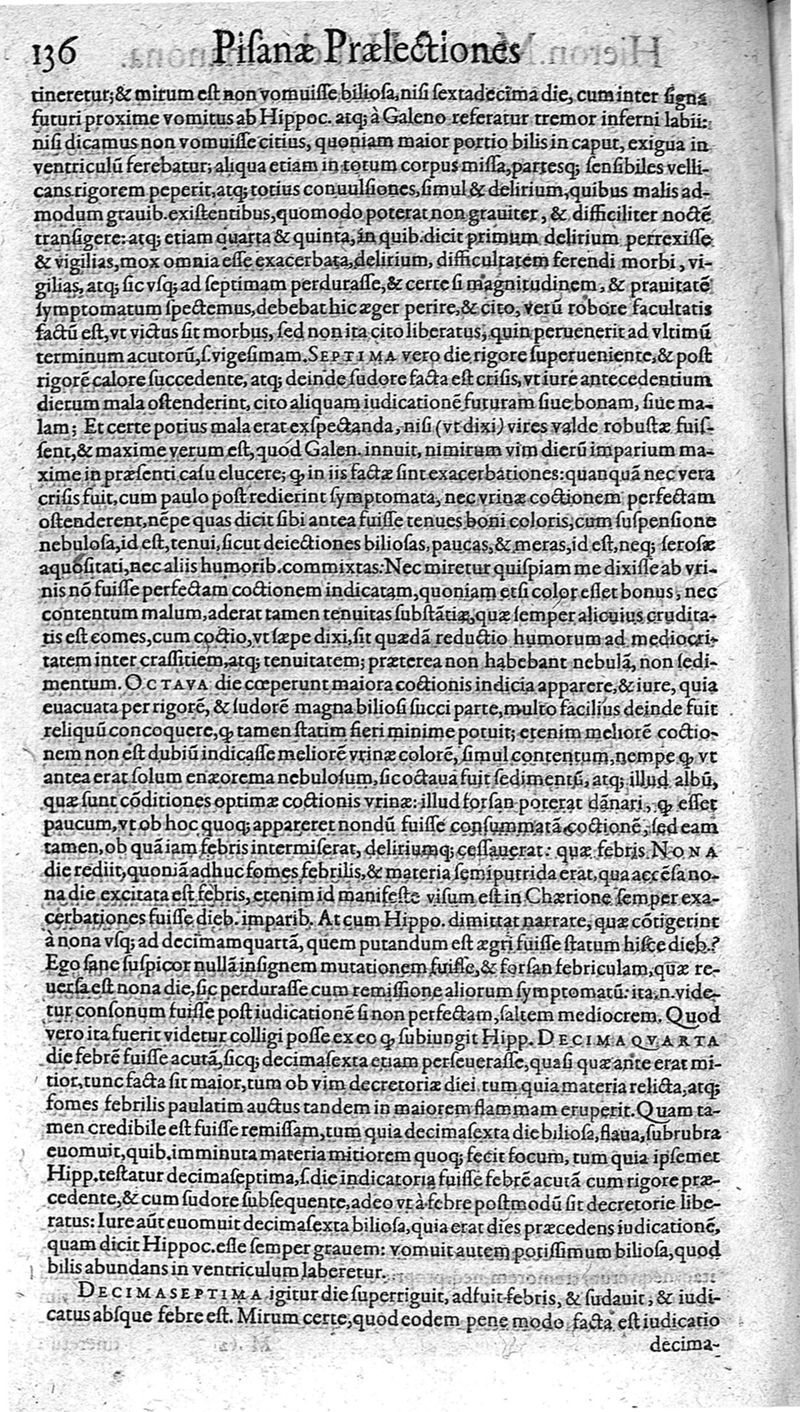 136 Piſanæ Prælectiones
tineretur;& mirum eſt non vomuiſſe bilioſa, niſi ſextadecima die, cum inter ſigna
futuri proxime vomitus ab Hippoc. atq; à Galeno referatur tremor inferni labii:
niſi dicamus non vomuiſſe citius, quoniam maior portio bilis in caput, exigua in
ventriculũ ferebatur; aliqua etiam in totum corpus miſſa, partesq; ſenſibiles velli-
cans rigorem peperit, atq; totius conuulſiones, ſimul & delirium, quibus malis ad-
modum grauib. exiſtentibus, quomodo poterat non grauiter, & difficiliter noctẽ
tranſigere: atq; etiam quarta & quinta, in quib. dicit primum delirium perrexiſſe
& vigilias, mox omnia eſſe exacerbata, delirium, difficultatem ferendi morbi, vi-
gilias, atq; ſic vſq; ad ſeptimam perduraſſe, & certe ſi magnitudinem, & prauitatẽ
ſymptomatum ſpectemus, debebat hic æger perire, & cito, verũ robore facultatis
factũ eſt, vt victus ſit morbus, ſed non ita cito liberatus, quin peruenerit ad vltimũ
terminum acutorũ, ſ. vigeſimam. SEPTIMA vero die, rigore ſuperueniente, & poſt
rigorẽ calore ſuccedente, atq; deinde ſudore facta eſt criſis, vt iure antecedentium
dierum mala oſtenderint, cito aliquam iudicationẽ futuram ſiue bonam, ſiue ma-
lam; Et certe potius mala erat exſpectanda, niſi (vt dixi) vires valde robuſtæ fuiſ-
ſent, & maxime verum eſt, quod Galen. innuit, nimirum vim dierũ imparium ma-
xime in præſenti caſu elucere; ꝙ in iis factæ ſint exacerbationes: quanquã nec vera
criſis fuit, cum paulo poſt redierint ſymptomata, nec vrinæ coctionem perfectam
oſtenderent, nẽpe quas dicit ſibi antea fuiſſe tenues boni coloris, cum ſuſpenſione
nebuloſa, id eſt, tenui, ſicut deiectiones bilioſas, paucas, & meras, id eſt, neq; ſeroſæ
aquoſitati, nec aliis humorib. commixtas: Nec miretur quiſpiam me dixiſſe ab vri-
nis nõ fuiſſe perfectam coctionem indicatam, quoniam etſi color eſſet bonus, nec
contentum malum, aderat tamen tenuitas ſubſtãtiæ, quæ ſemper alicuius crudita-
tis eſt comes, cum coctio, vt ſæpe dixi, ſit quædã reductio humorum ad mediocri-
tatem inter craſſitiem, atq; tenuitatem; præterea non habebant nebulã, non ſedi-
mentum. OCTAVA die cœperunt maiora coctionis indicia apparere, & iure, quia
euacuata per rigorẽ, & ſudorẽ magna bilioſi ſucci parte, multo facilius deinde fuit
reliquũ concoquere, ꝙ tamen ſtatim fieri minime potuit; etenim meliorẽ coctio-
nem non eſt dubiũ indicaſſe meliorẽ vrinæ colorẽ, ſimul contentum, nempe ꝙ vt
antea erat ſolum enæorema nebuloſum, ſic octaua fuit ſedimentũ, atq; illud albũ,
quæ ſunt cõditiones optimæ coctionis vrinæ: illud forſan poterat dãnari, ꝙ eſſet
paucum, vt ob hoc quoq; appareret nondũ fuiſſe conſummatã coctionẽ, ſed eam
tamen, ob quã iam febris intermiſerat, deliriumq; ceſſauerat: quæ febris NONA
die rediit, quoniã adhuc fomes febrilis, & materia ſemiputrida erat, qua accẽſa no-
na die excitata eſt febris, etenim id manifeſte viſum eſt in Chærione ſemper exa-
cerbationes fuiſſe dieb. imparib. At cum Hippo. dimittat narrare, quæ cõtigerint
à nona vſq; ad decimamquartã, quem putandum eſt ægri fuiſſe ſtatum hiſce dieb.?
Ego ſane ſuſpicor nullã inſignem mutationem fuiſſe, & forſan febriculam, quæ re-
uerſa eſt nona die, ſic perduraſſe cum remiſſione aliorum ſymptomatũ: ita. n. vide-
tur conſonum fuiſſe poſt iudicationẽ ſi non perfectam, ſaltem mediocrem. Quod
vero ita fuerit videtur colligi poſſe ex eo ꝙ ſubiungit Hipp. DECIMAQVARTA
die febrẽ fuiſſe acutã, ſicq; decimaſexta etiam perſeueraſſe, quaſi quæ ante erat mi-
tior, tunc facta ſit maior, tum ob vim decretoriæ diei, tum quia materia relicta, atq;
fomes febrilis paulatim auctus tandem in maiorem flammam eruperit. Quam ta-
men credibile eſt fuiſſe remiſſam, tum quia decimaſexta die bilioſa, flaua, ſubrubra
euomuit, quib. imminuta materia mitiorem quoq; fecit focum, tum quia ipſemet
Hipp. teſtatur decimaſeptima, ſ. die indicatoria fuiſſe febrẽ acutã cum rigore præ-
cedente, & cum ſudore ſubſequente, adeo vt à febre poſtmodũ ſit decretorie libe-
ratus: Iure aũt euomuit decimaſexta bilioſa, quia erat dies præcedens iudicationẽ,
quam dicit Hippoc. eſſe ſemper grauem: vomuit autem potiſſimum bilioſa, quod
bilis abundans in ventriculum laberetur.
DECIMASEPTIMA igitur die ſuperriguit, adfuit febris, & ſudauit, & iudi-
catus abſque febre eſt. Mirum certe, quod eodem pene modo facta eſt iudicatio
decima-